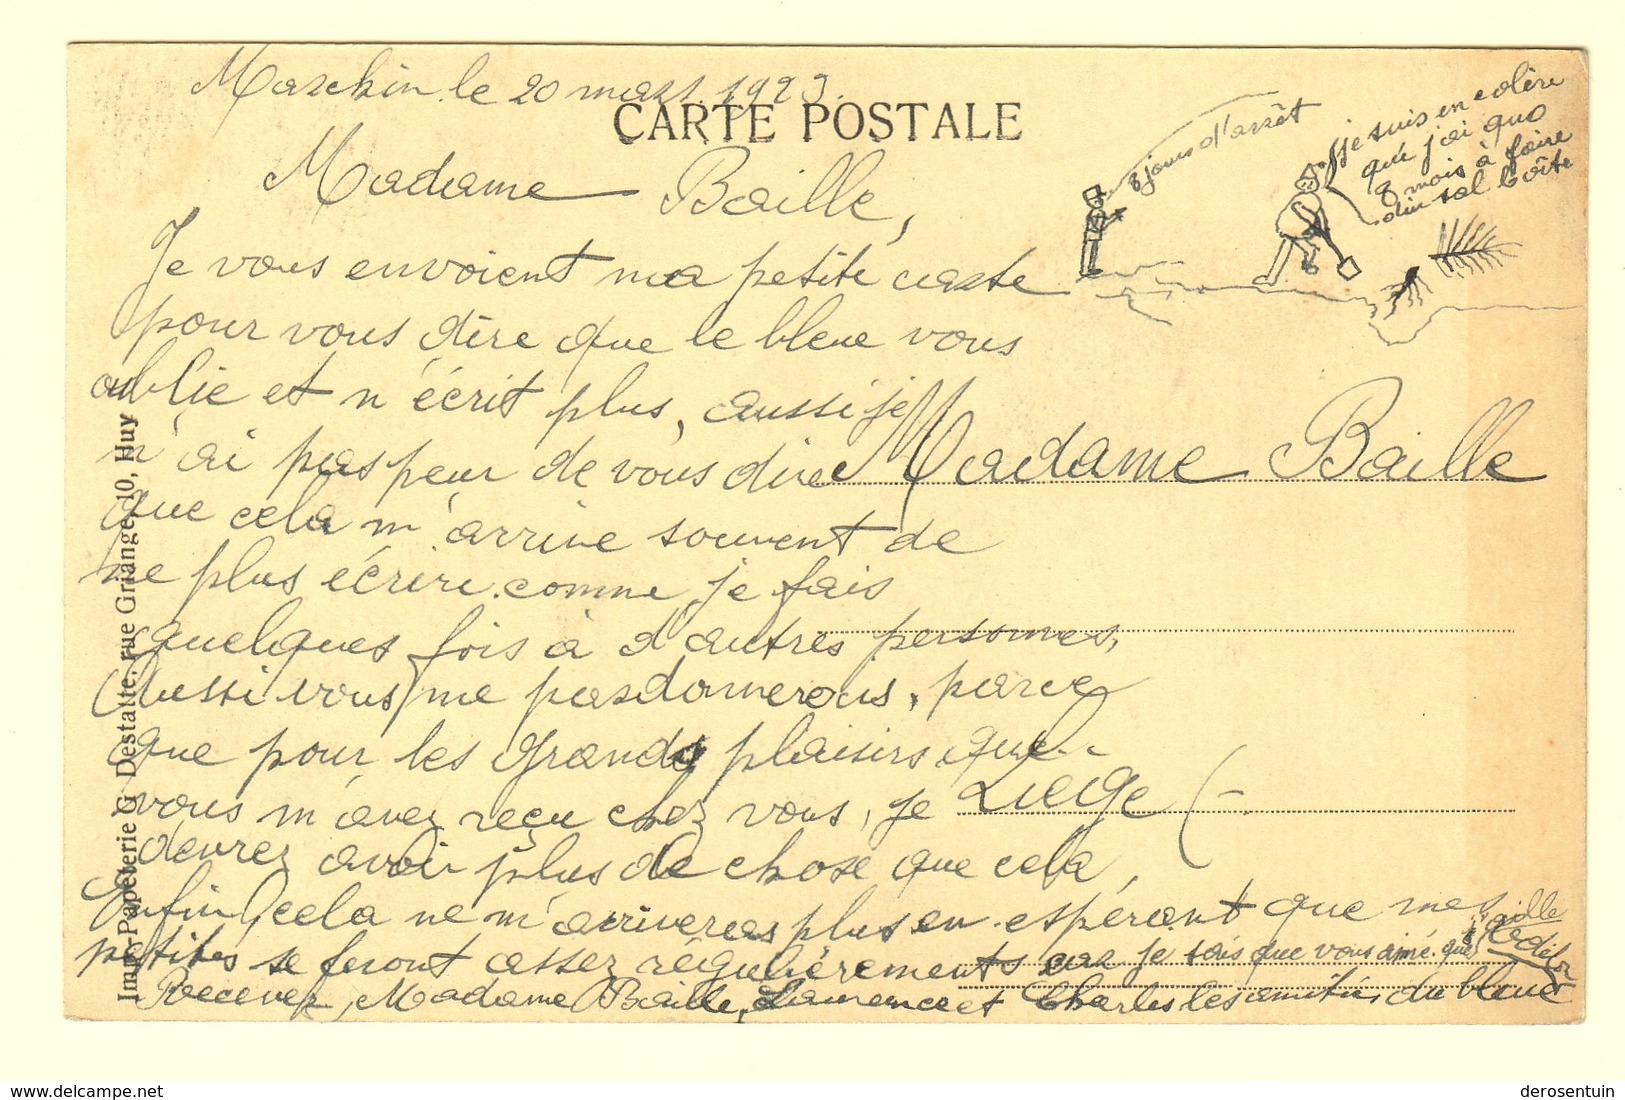 Marchin le 20 mars 1923.
CARTE POSTALE
Madame Baille,
Je vous envoient ma petite carte
pour vous dire que le bleue vous
oublie et n'écrit plus, aussi je
n'ai pas peur de vous dire
que cela m'arrive souvent de
ne plus écrire comme je fais
quelques fois à d'autres personnes,
Aussi vous me pardonnerons, parce
que pour les grands plaisirs que
vous m'avez reçu chez vous, je
devrez avoir plus de chose que cela,
Enfin cela ne m'arriveras plus en espérant que mes
petites se feront assez régulièrements car je sais que vous aimé que
Recever, Madame Baille, Laurence et Charles les amitiés du bleue
8 jours d'arrêt
je suis en colère
que j'ai quo
8 mois à faire
din sal boîte
Madame Baille
Liège (-
Imp. Papeterie G Destatte, rue Griange, 10, Huy
https://www.delcampe.net
derosentuin